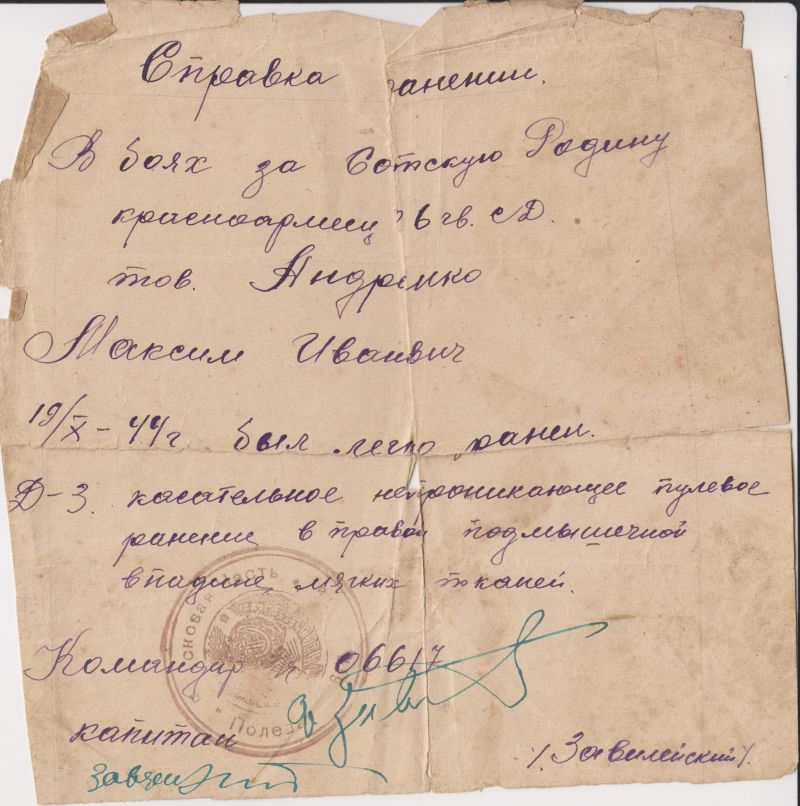 Справка ранении.
В боях за Советскую Родину
красноармеец 6 гв. сД.
тов. Андренко
Максим Иванвич
19/X - 44 г был легко ранен.
Д-з. касательное непроникающее пулевое
ранение в правой подмышечной
впадине мягких тканей.
Командир 06617
капитан /Завилейский/.
Полевая